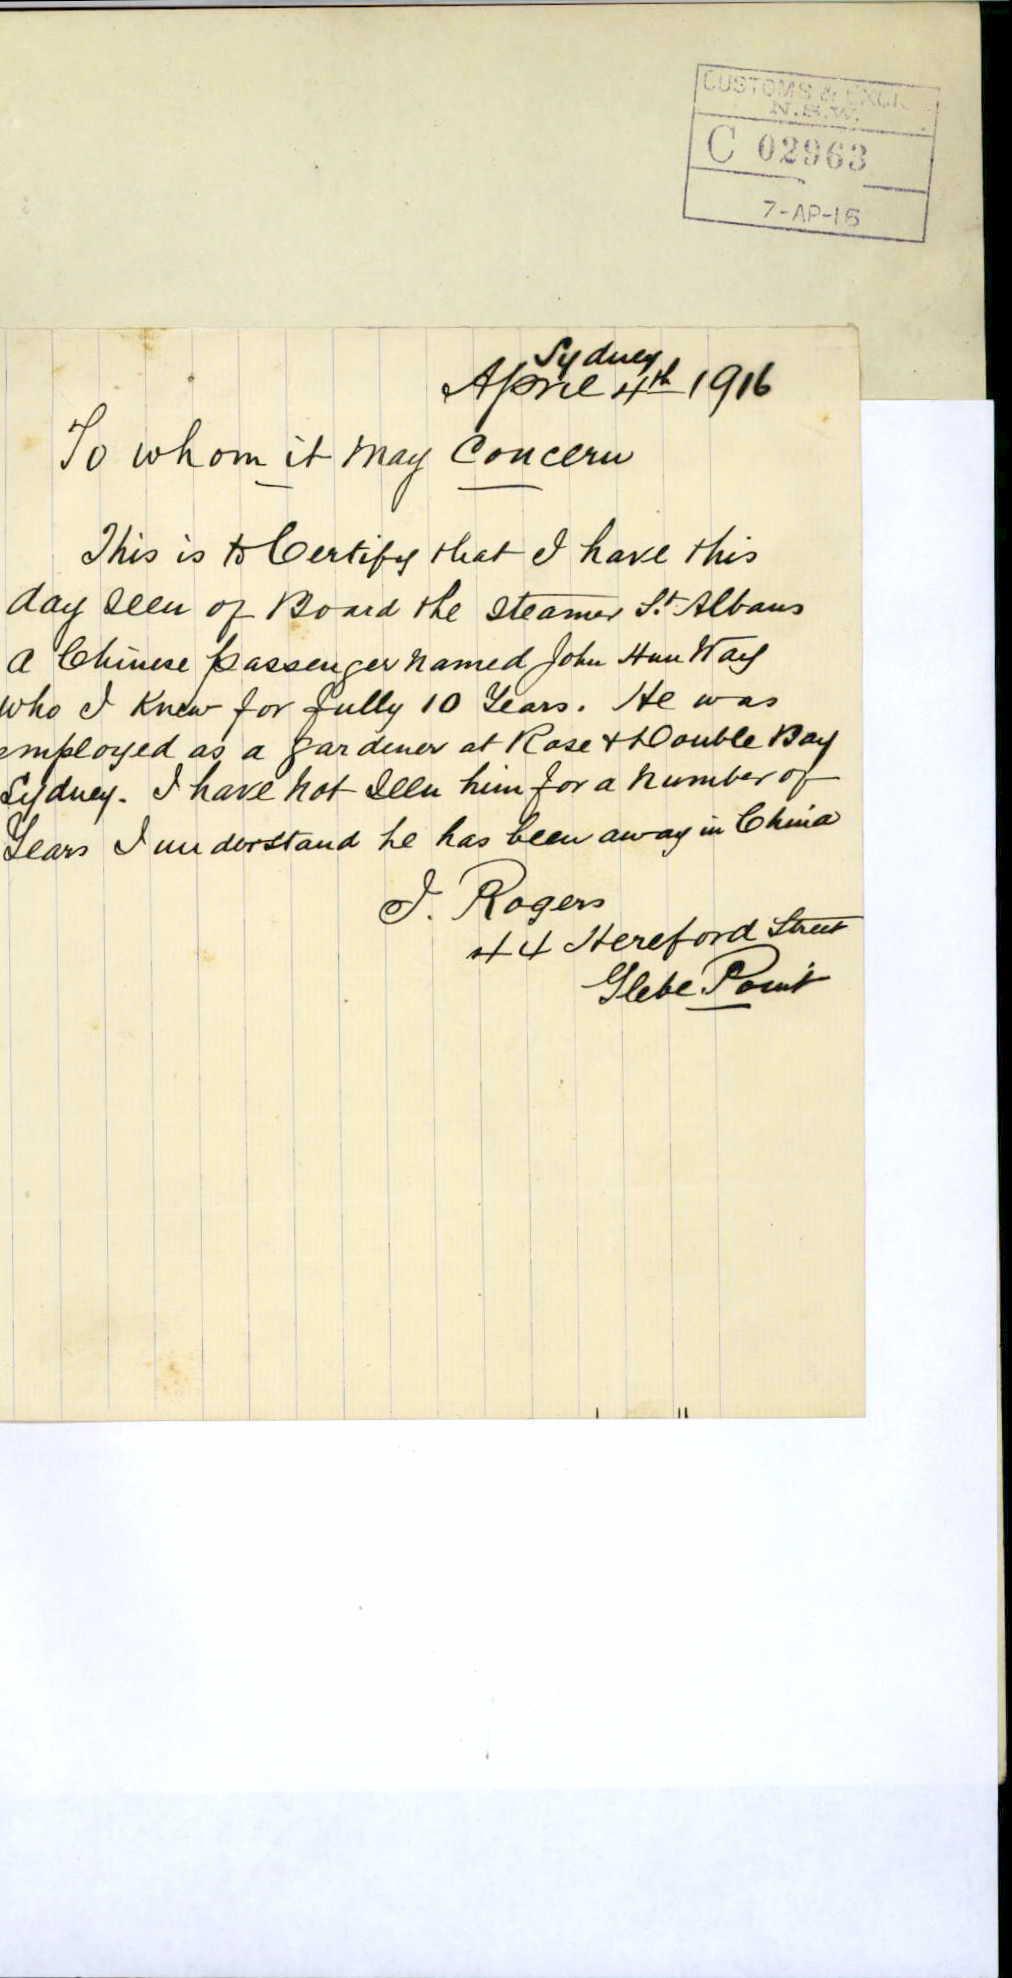 CUSTOMS & EXCI
N.S.W.
C 02963
7-AP-16
Sydney
April 4th 1916
To whom it may Concern
This is to Certify that I have this
day seen of Board the Steamer St. Albans
a Chinese passenger named John Hun Way
who I knew for fully 10 Years. He was
employed as a gardener at Rose & Double Bay
Sydney. I have not seen him for a number of
Years I understand he has been away in China
J. Rogers
44 Hereford Street
Glebe Point